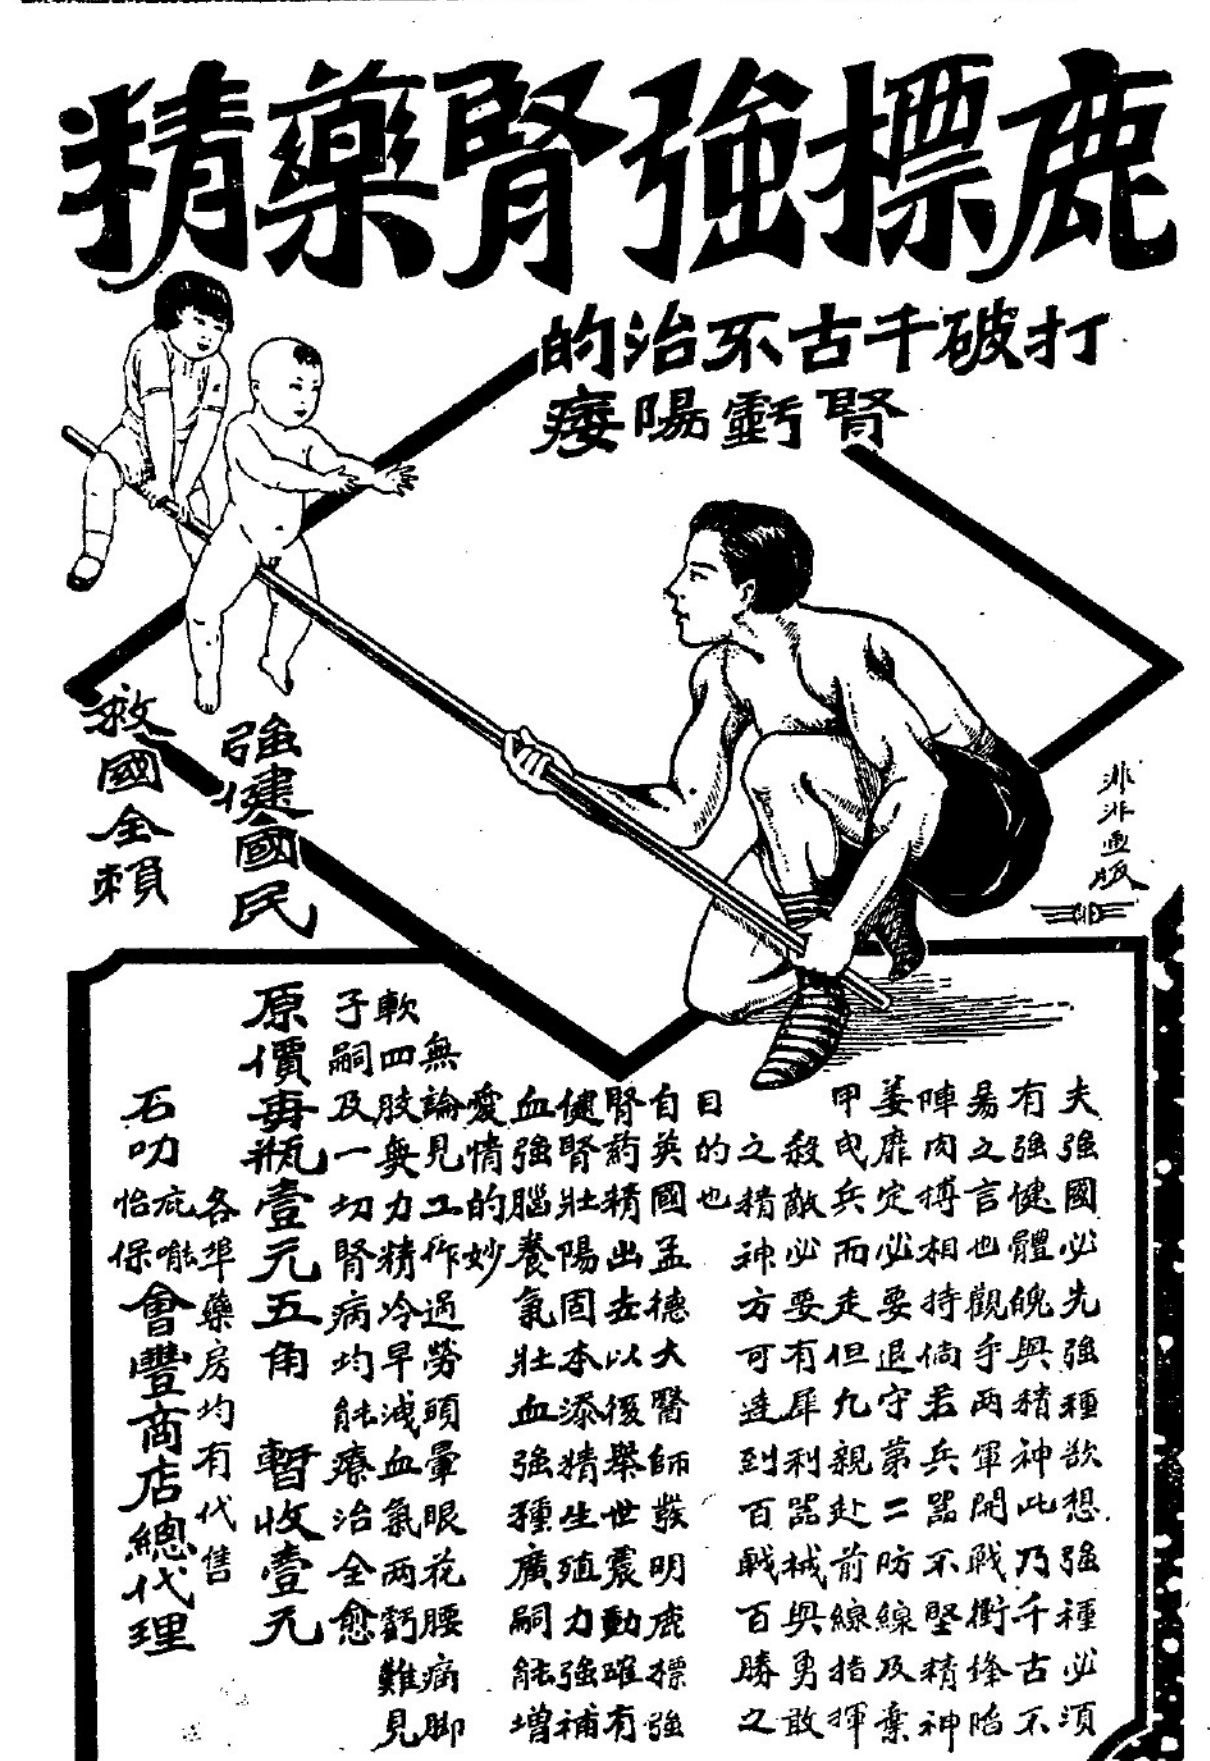 鹿標強腎藥精
打破千古不治的
腎虧陽痿
強健國民
救國全賴
非非画版
夫強國必先強種欲想強種必須
有強健體魄與精神此乃千古不
易之言也觀乎两軍開戰衝鋒陷
陣肉搏相持倘若兵器不堅精神
萎靡定必要退守第二防線及棄
甲曳兵而走但凡親赴前線指揮
殺敵必要有犀利器械與勇敢
之精神方可達到百戰百勝之
目的也
自英國孟德大醫師發明鹿標強
腎药精出去以後舉世震動確有
健腎壯陽固本添精生殖力強補
血強腦養氣壯血強種廣嗣能增
愛情的妙
無論見工作過勞頭暈眼花腰痛脚
軟四肢無力精冷早洩血氣两虧難見
子嗣及一切腎病均能療治全愈
原價每瓶壹元五角 暫收壹元
各埠藥房均有代售
石叻庇能怡保會豐商店總代理